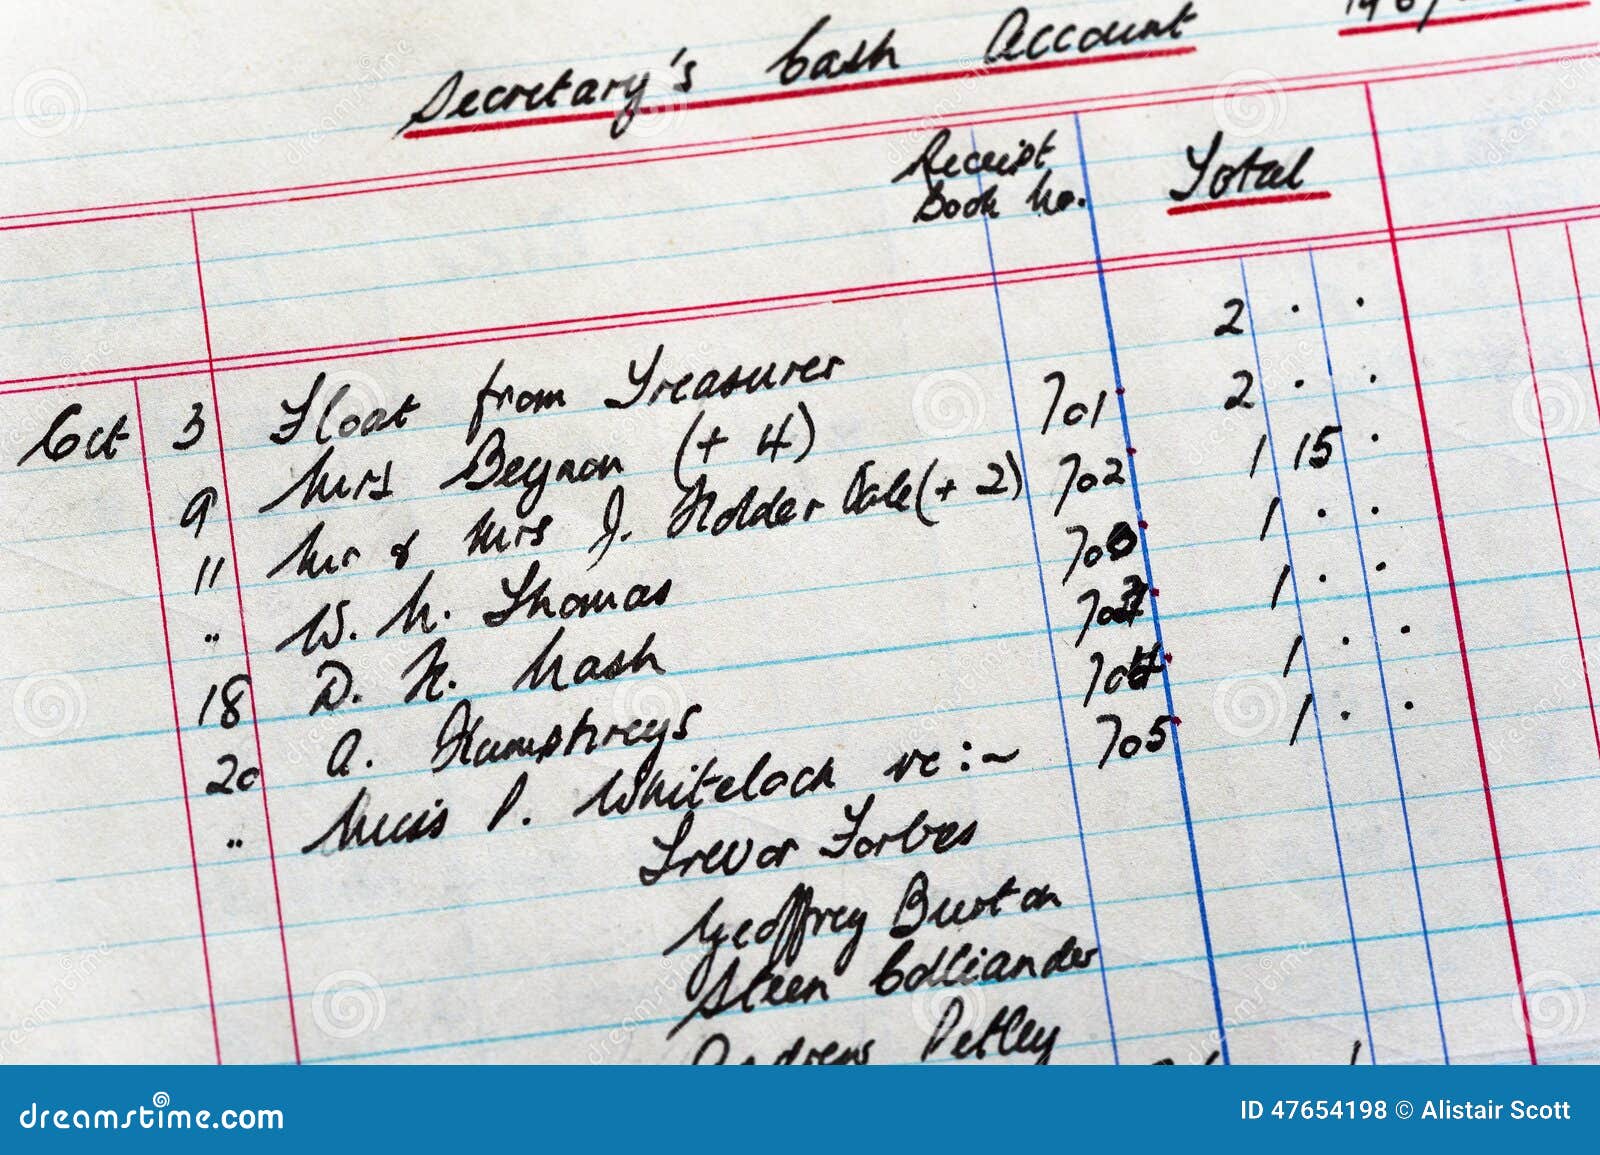 Secretary's Cash Account
Receipt
Book No. Total
Oct 3 Float from Treasurer 2 . .
9 Mrs Beynon (+ 4) 701 2 . .
11 Mr & Mrs J. Holder Vale (+ 2) 702 1 15 .
" W. N. Thomas 1 . .
18 D. H. Nash 1 . .
20 A. Humphreys 704 1 . .
" Miss P. Whitelock re:- 705 1 . .
Trevor Forbes
Geoffrey Burton
Steen Colliander
Andrew Petley
dreamstime.com ID 47654198 © Alistair Scott